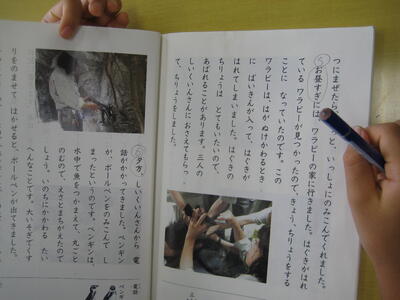 つにまぜたら、
と、いっしょにのみこんでくれました。
⑤お昼すぎには、ワラビーの家に行きました。はぐきがはれ
ている ワラビーが見つかったので、きょう ちりょうをする
ことに なっていたのです。この
ワラビーは、はが ぬけかわるとき
に ばいきんが入って、はぐきが
はれてしまいました。はぐきの
ちりょうは とてもいたいので、
あばれることがあります。三人の
しいくいんさんに おさえてもらっ
て、ちりょうをしました。
⑥夕方、しいくいんさんから 電
話がかかってきました。ペンギン
が、ボールペンをのみこんでし
まったというのです。ペンギンは、
水中で 魚をつかまえて、丸ごと
のむので、えさとまちがえたので
しょう。いのちにかかわる たい
へんなことです。大いそぎでくす
りをのませて、はかせると、ボールペンが出てきました。
電話
ペンギ